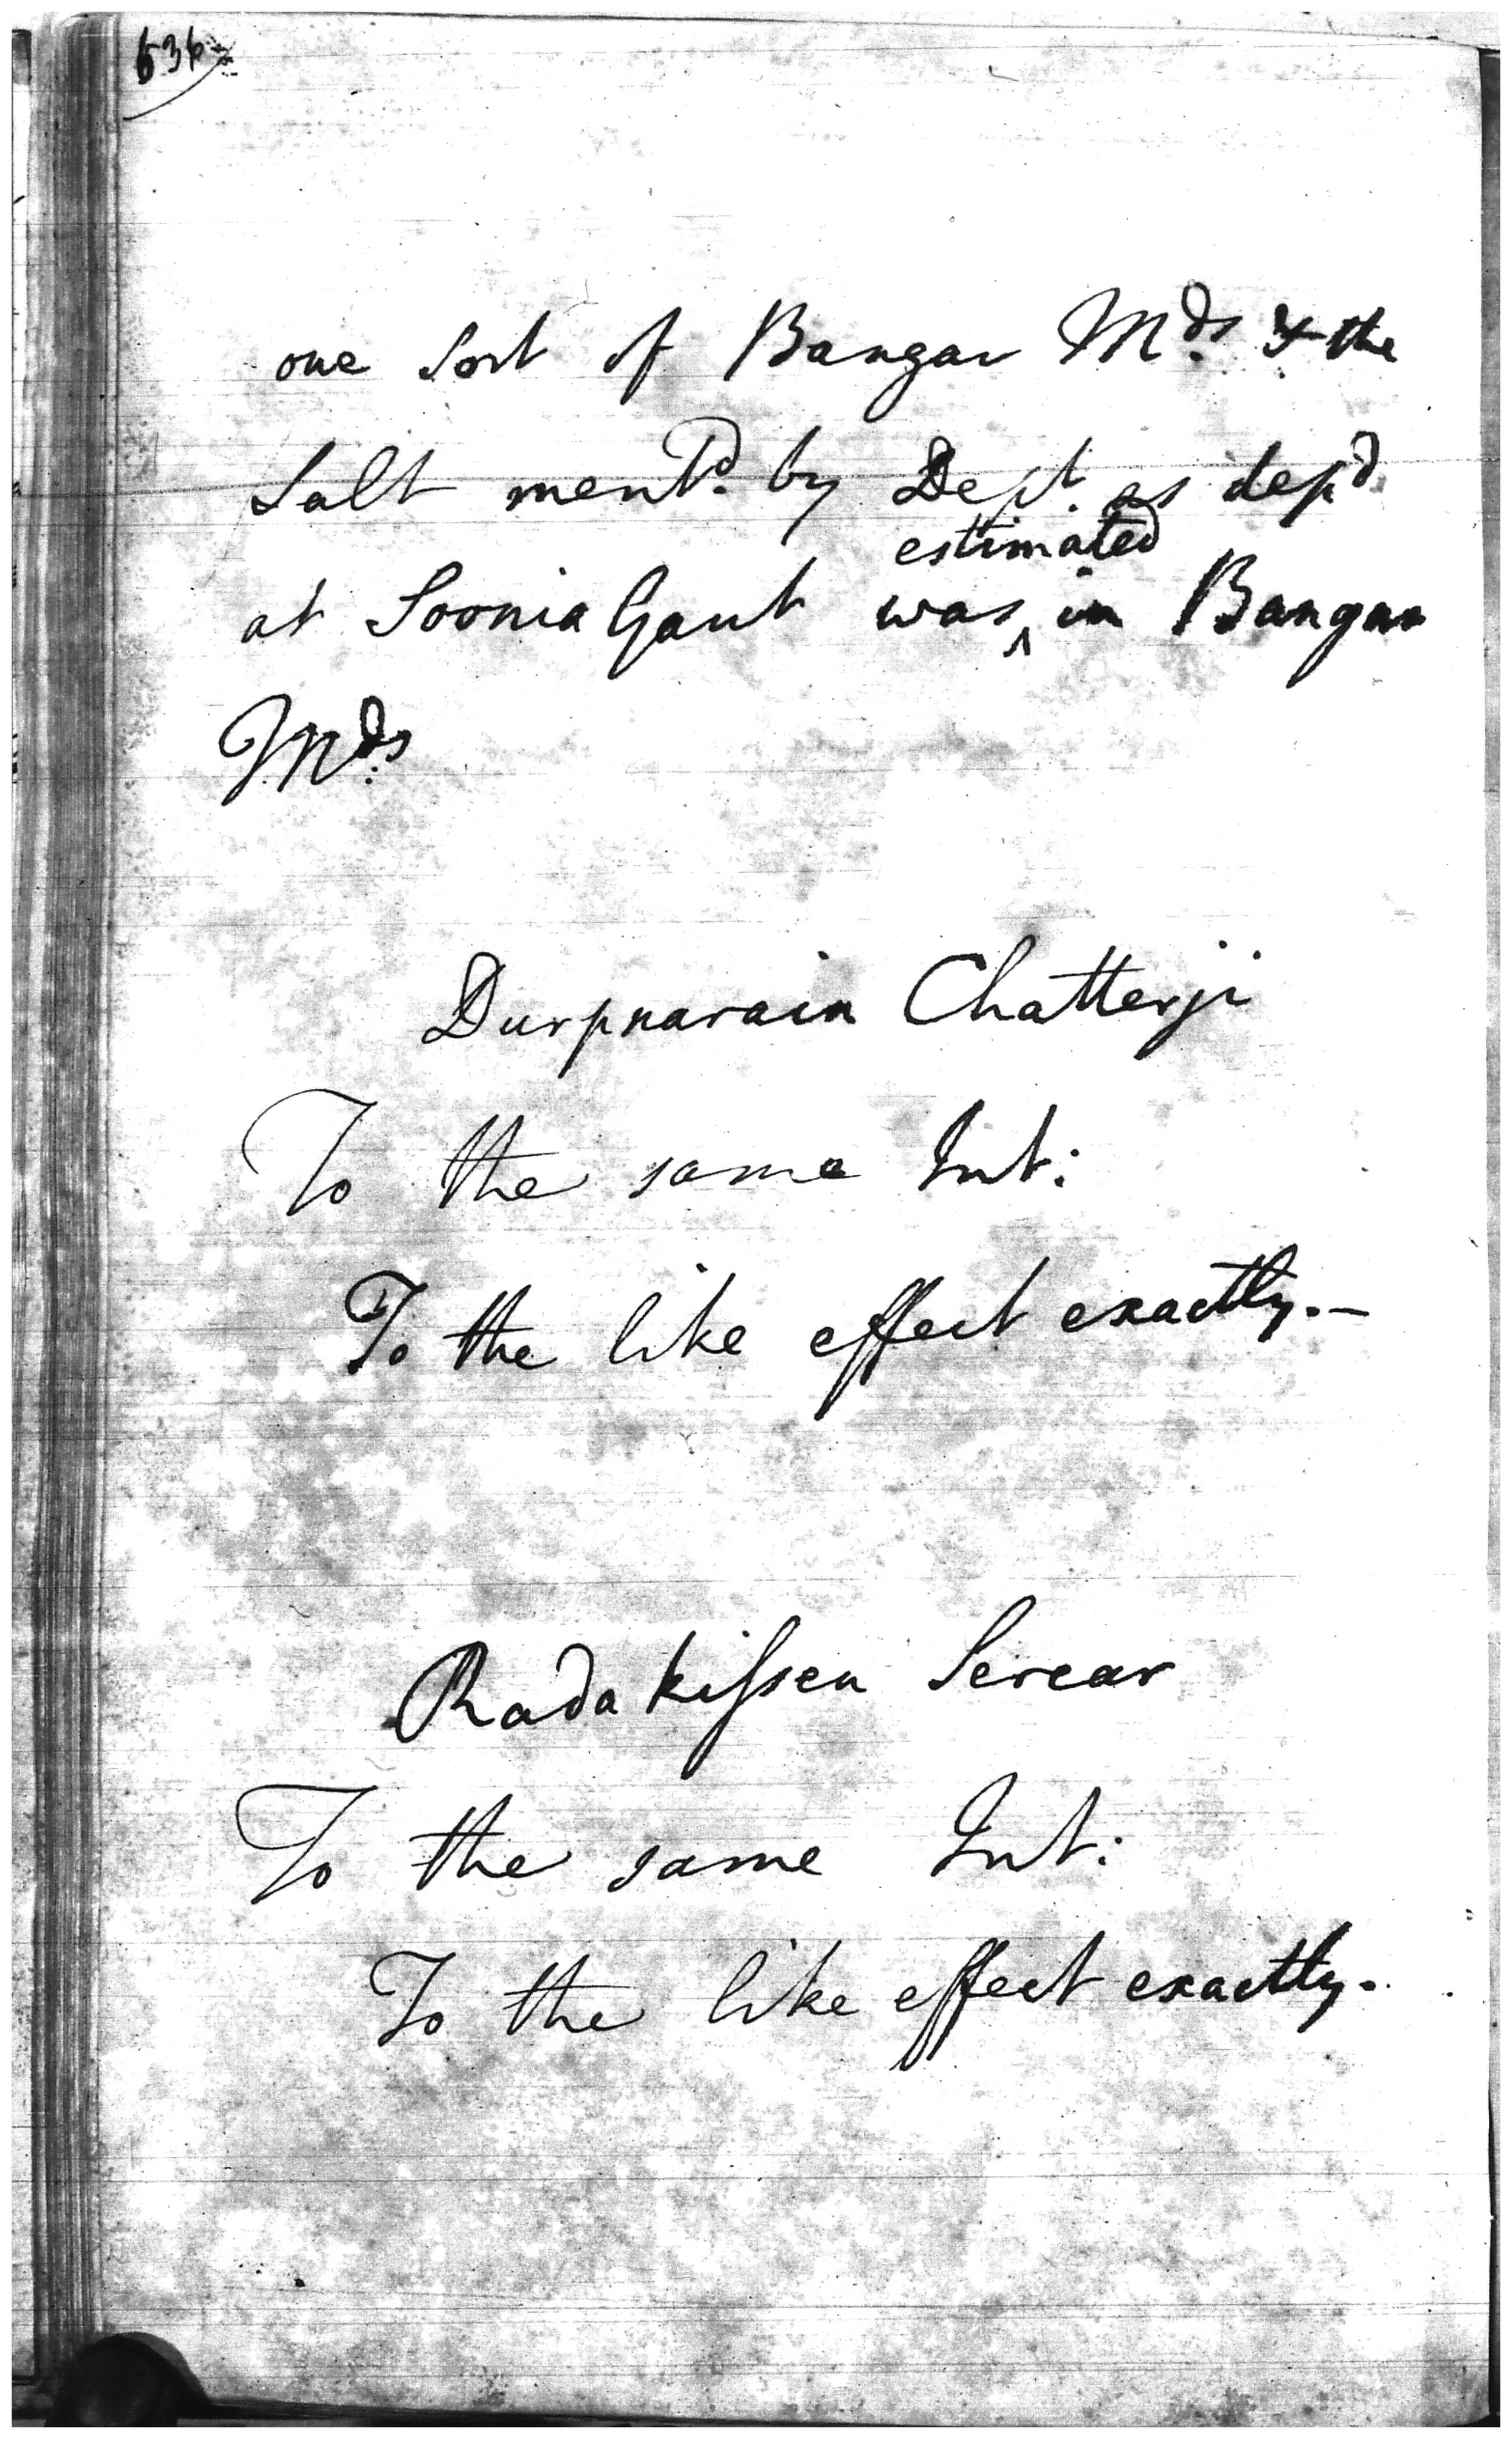 636
one Sort of Bangar Mds. & the
Salt mentd. by Dept. as depd.
at Soonia Gaut was ^estimated in Bangar
Mds.
Durpnarain Chatterji
To the same Int:
To the like effect exactly.—
Rada kissen Sercar
To the same Int:
To the like effect exactly.